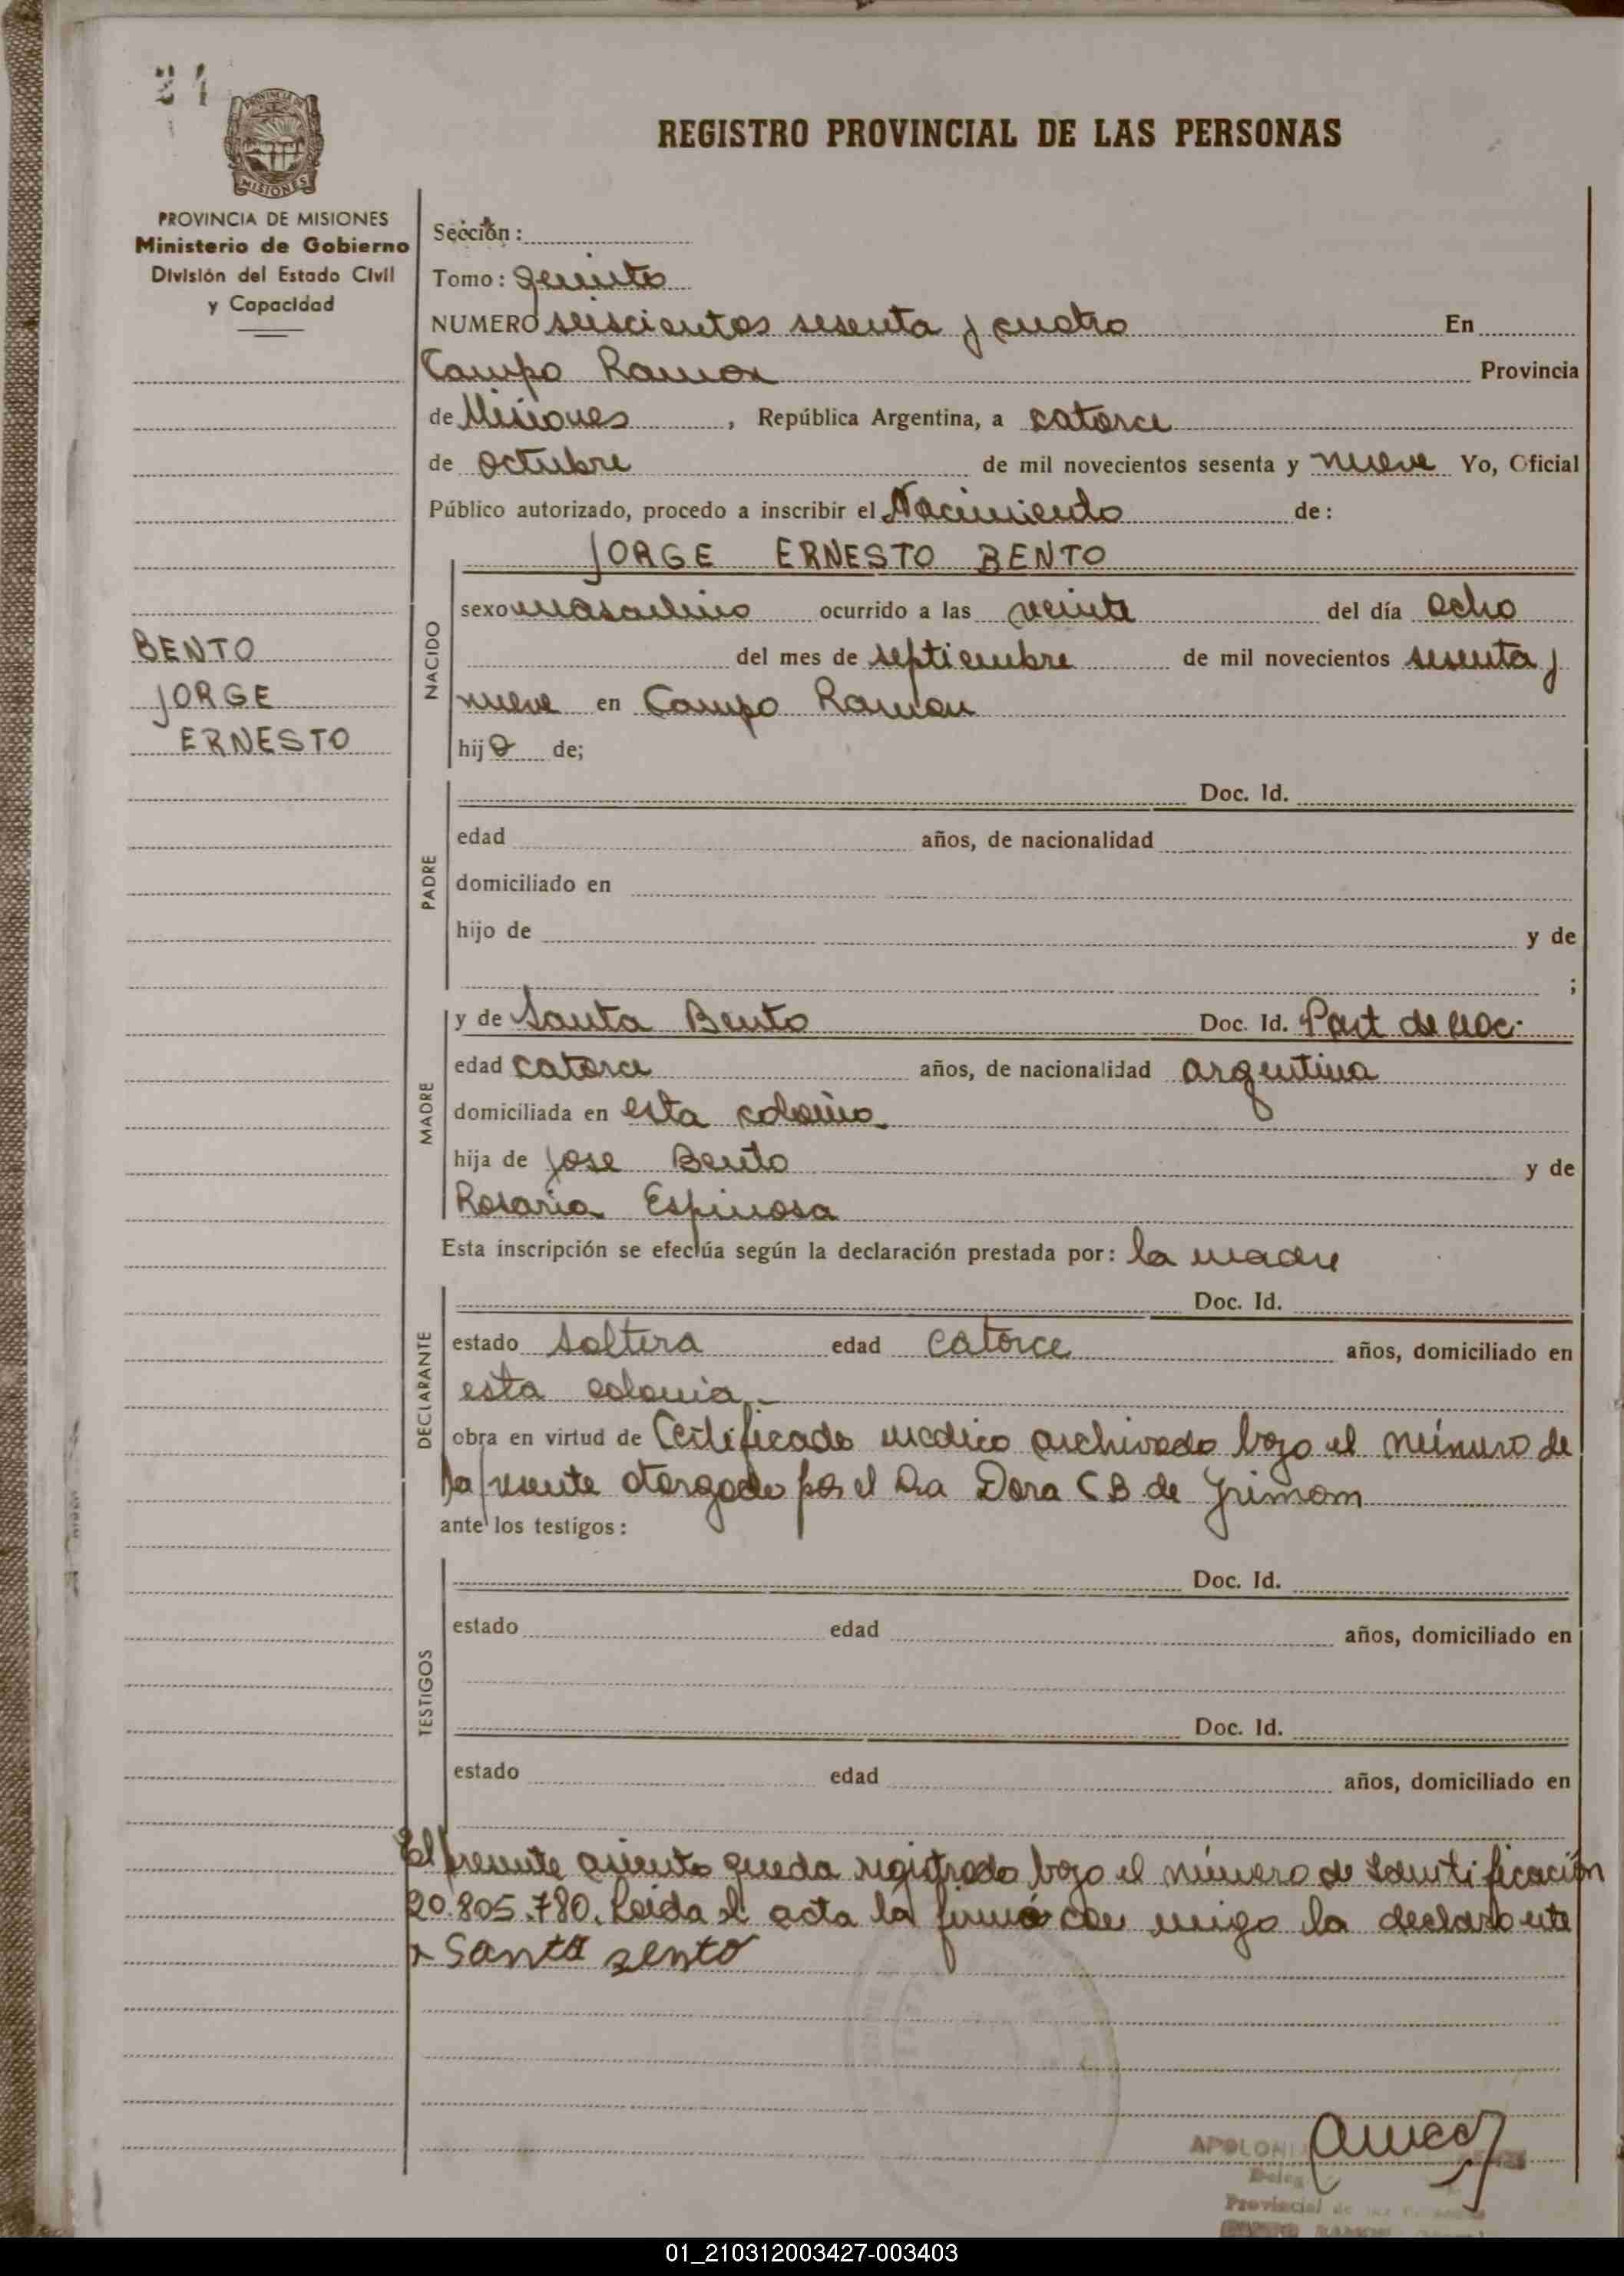 21
PROVINCIA DE
MISIONES
PROVINCIA DE MISIONES
Ministerio de Gobierno
División del Estado Civil
y Capacidad
REGISTRO PROVINCIAL DE LAS PERSONAS
Sección:
Tomo: quinto
NUMERO seiscientos sesenta y cuatro En
Campo Ramon Provincia
de Misiones, República Argentina, a catorce
de octubre de mil novecientos sesenta y nueve Yo, Oficial
Público autorizado, procedo a inscribir el Nacimiento de:
JORGE ERNESTO BENTO
NACIDO
sexo masculino ocurrido a las veinte del día ocho
del mes de septiembre de mil novecientos sesenta y
nueve en Campo Ramon
hijo de;
BENTO
JORGE
ERNESTO
PADRE
Doc. Id.
edad años, de nacionalidad
domiciliado en
hijo de y de
;
MADRE
y de Santa Bento Doc. Id. Part de nac.
edad catorce años, de nacionalidad argentina
domiciliada en esta colonia
hija de Jose Bento y de
Rosaria Espinosa
Esta inscripción se efectúa según la declaración prestada por: la madre
DECLARANTE
Doc. Id.
estado soltera edad catorce años, domiciliado en
esta colonia.-
obra en virtud de Certificado medico archivado bajo el número de
la presente otorgado por el Dra Dora C B de
ante los testigos:
TESTIGOS
Doc. Id.
estado edad años, domiciliado en
Doc. Id.
estado edad años, domiciliado en
El presente asiento queda registrado bajo el número de Identificación
20.805.780. Leida el acta la firmó con migo la declarante
x Santa Bento
Provincial de
01_210312003427-003403